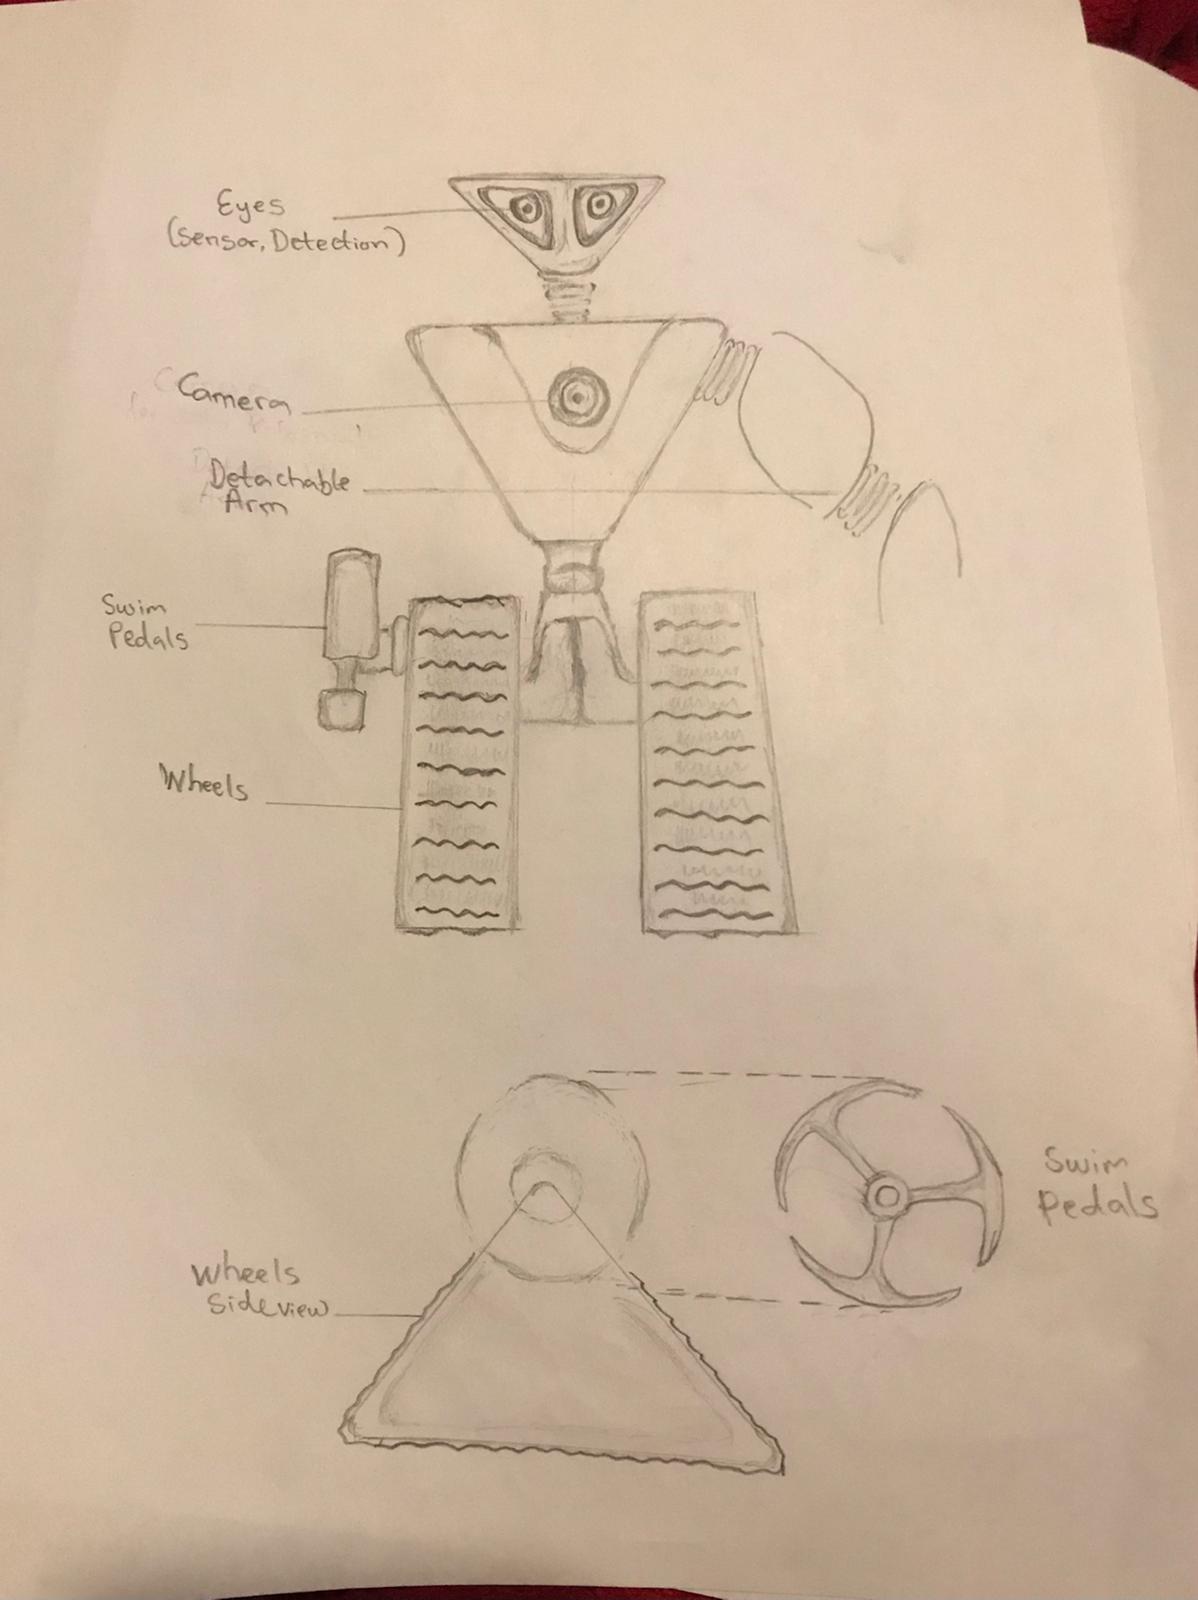 Eyes
(Sensor, Detection)
Camera
Detachable
Arm
Swim
Pedals
Wheels
Swim
Pedals
Wheels
Sideview